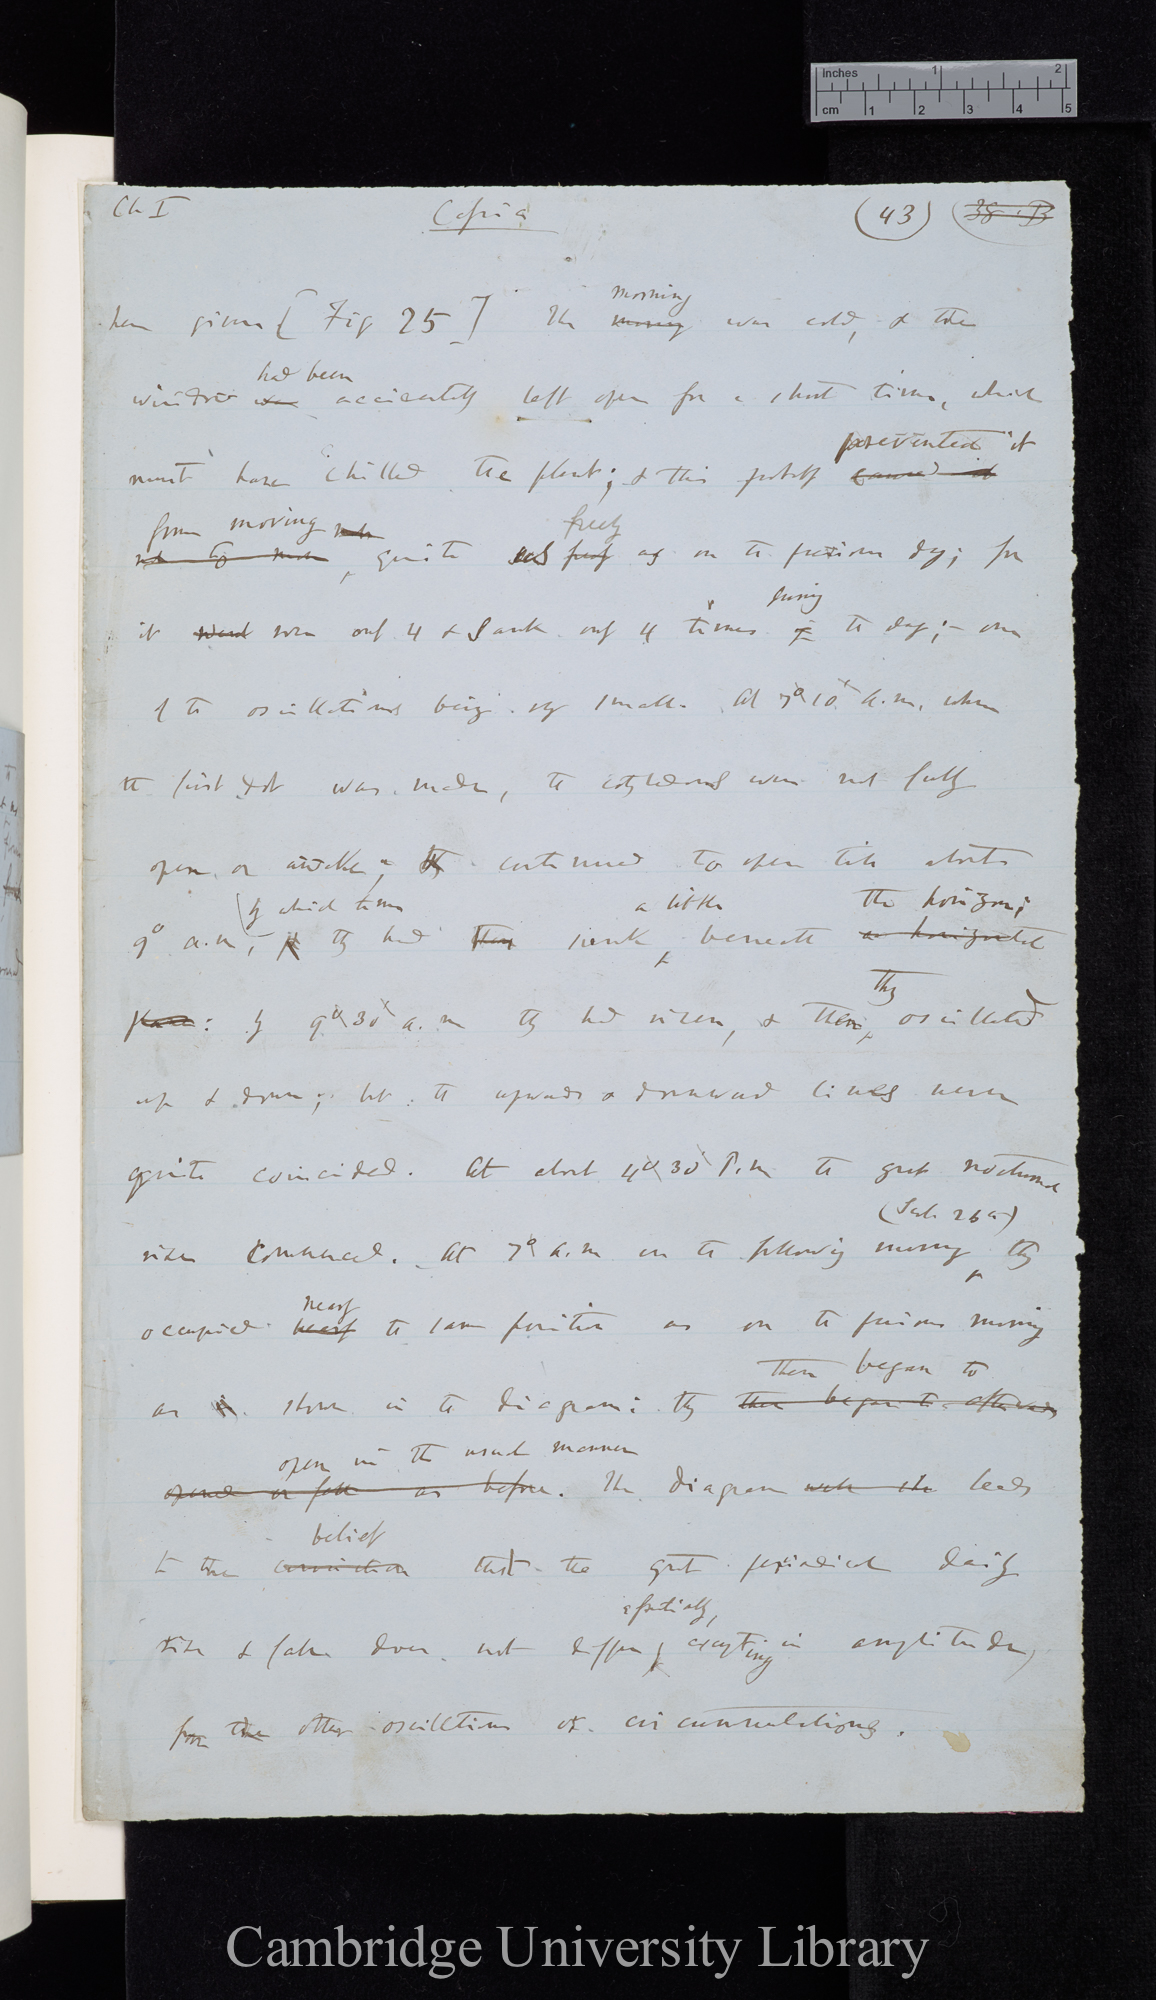 Inches 1 2
cm 1 2 3 4 5
Ch I Cassia (43) 38. B
here given [Fig 25] The morning
morning was cold, & the
had been
window was accidentally left open for a short time, which
prevented it
must have chilled the plant; & this probably caused it
from moving
not to move quite as freely as on the previous day; for
freely
during
it rose only 4 & sank only 4 times in the day; one
of the oscillations being very small. At 7° 10' a.m. when
the first dot was made, the cotyledons were not fully
open or awake; they continued to open till about
by which time a little the horizon;
9° a.m; they had then sunk beneath a horizontal
they
plane: by 9° 30' a.m they had risen, & then oscillated
up & down; but the upward & downward lines never
quite coincided. At about 4° 30' P.m the great nocturnal
(Feb. 26th)
rise commenced. At 7° a.m on the following morning they
nearly
occupied nearly the same position as on the previous morning
then began to
as is shown in the diagram: they then began to afterwards
open in the usual manner
opened or fall as before. The diagram leads
belief
to the conviction that the great periodical daily
essentially,
rise & fall does not differ excepting in amplitude,
from the other oscillations or circumnutations.
Cambridge University Library